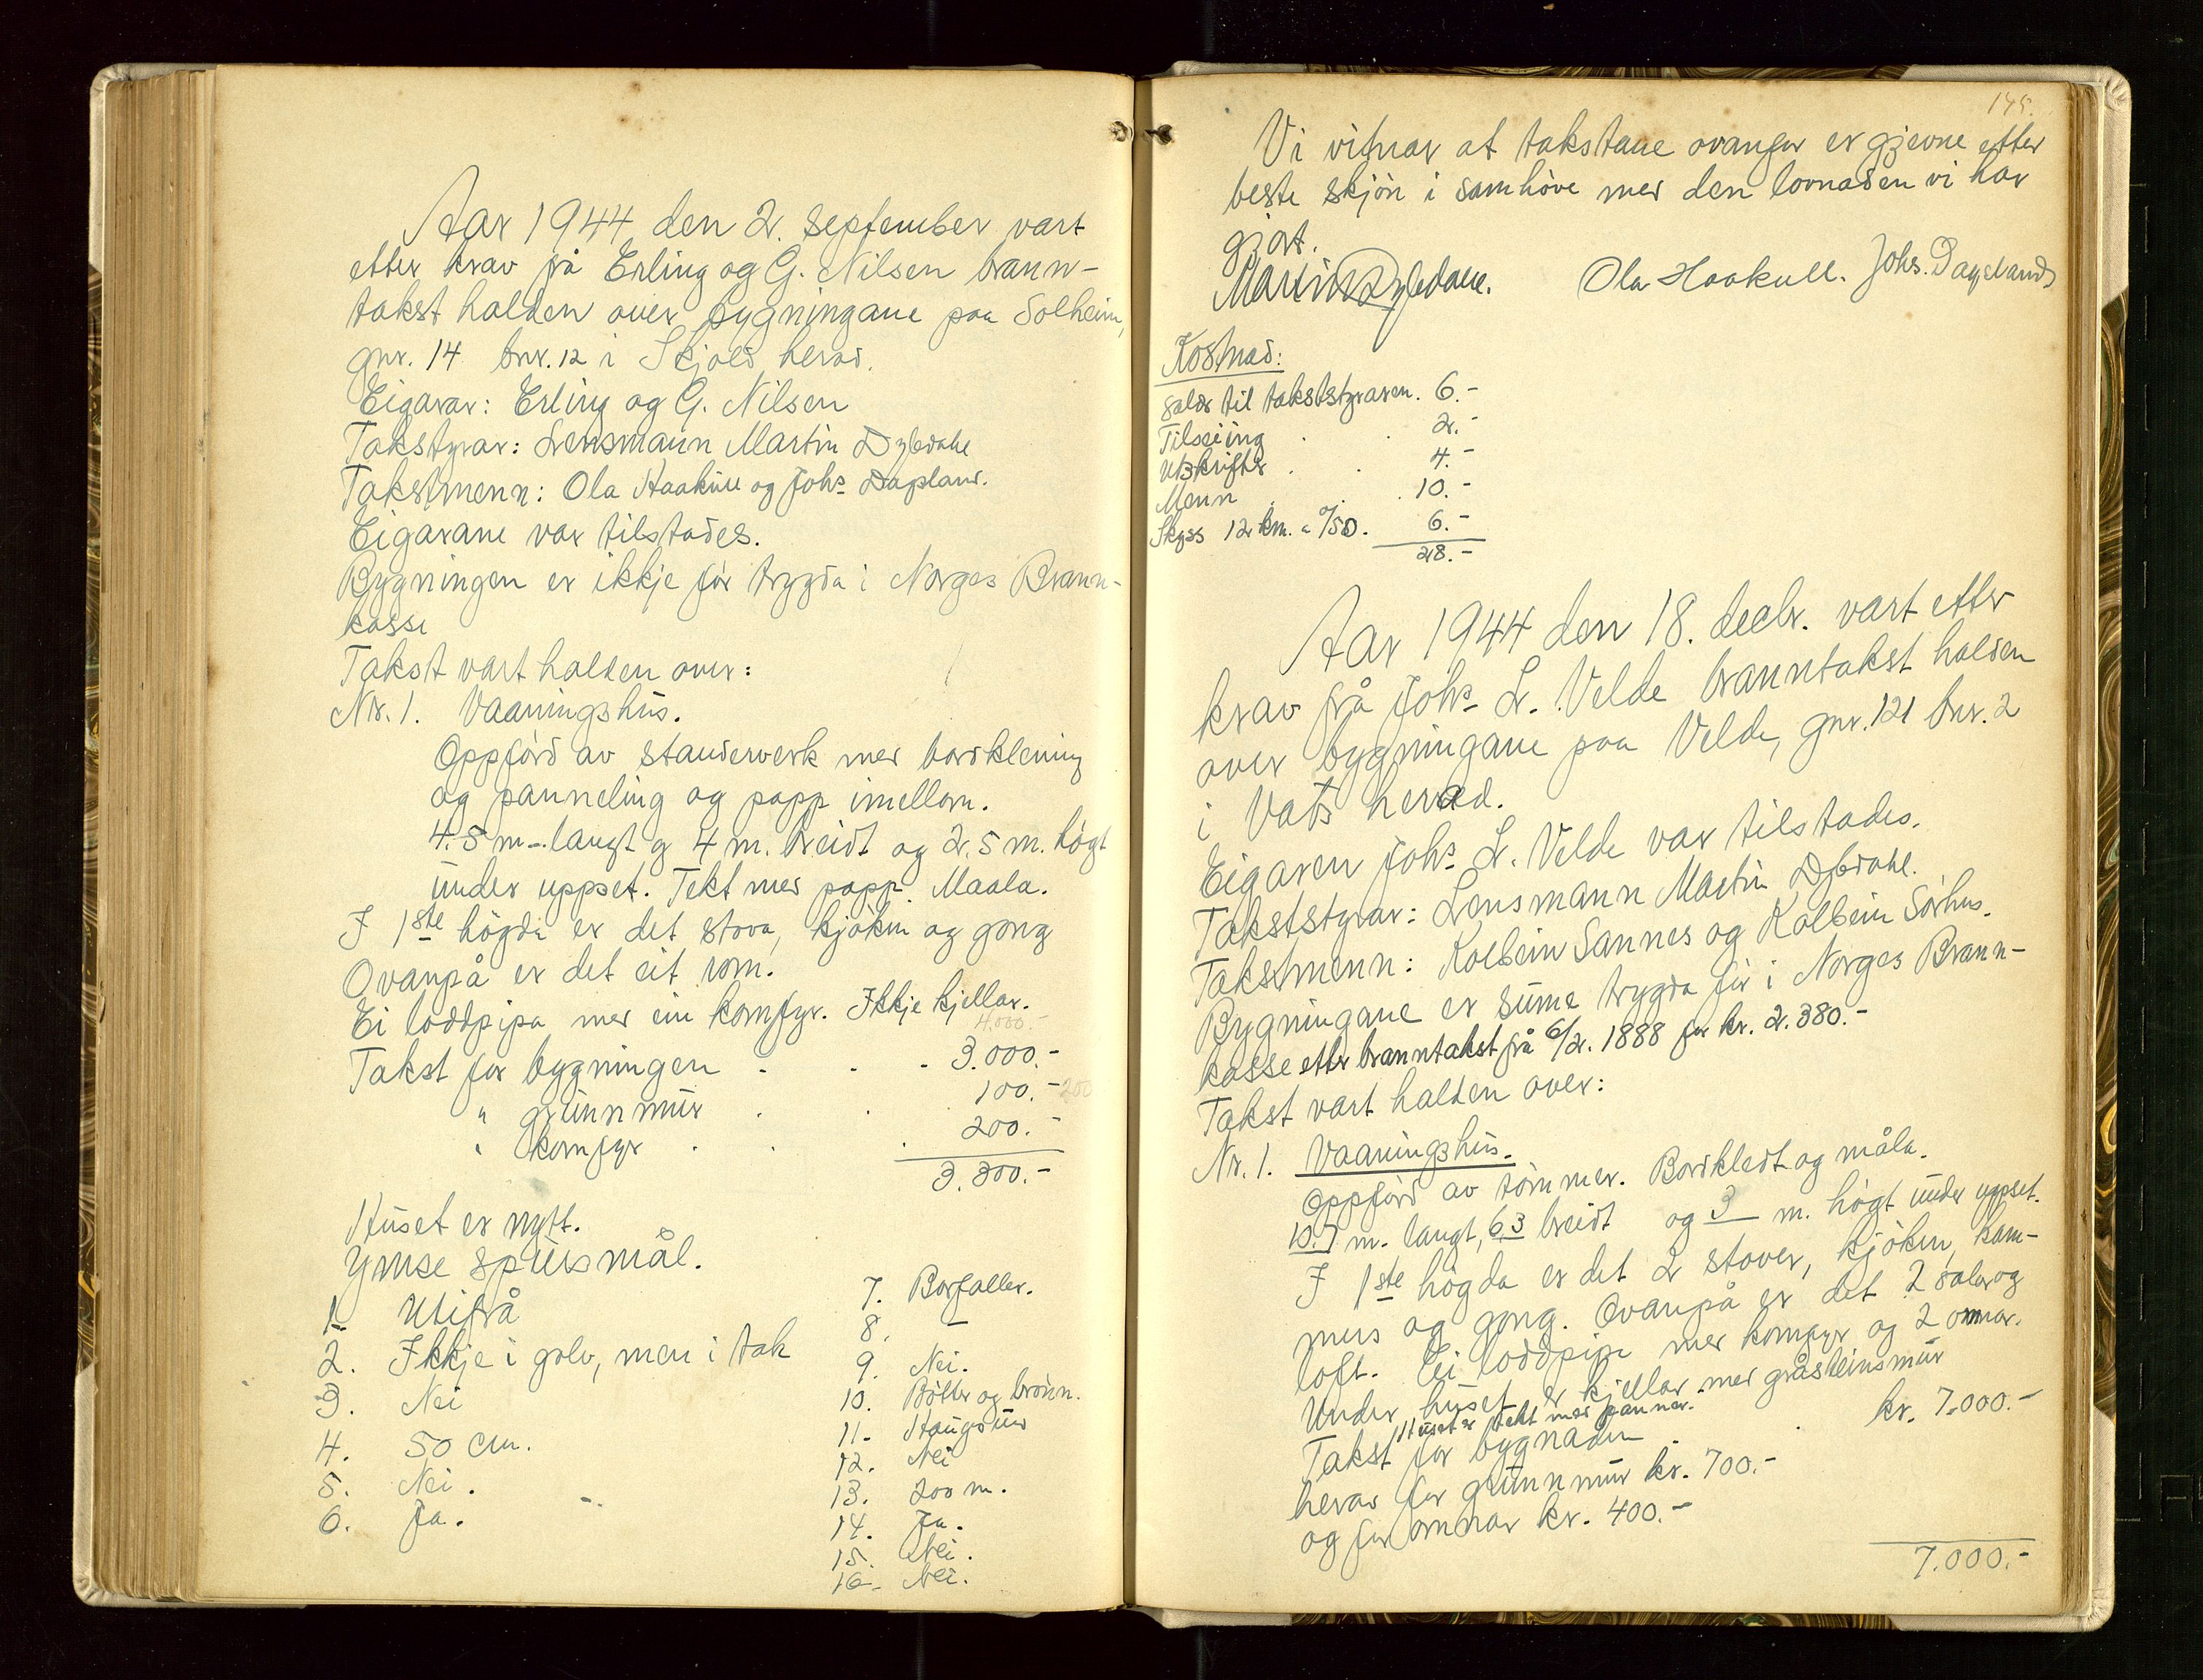 Aar 1944 den 2. september vart
etter krav frå Erling og G. Nilsen brann-
takst halden over bygningane paa Solheim,
gnr. 14 bnr. 12 i Skjold herad.
Eigarar: Erling og G. Nilsen
Takstyrar: Lensmann Martin Dybdahl
Takstmenn: Ola Haakull og Johs Dagsland.
Eigarane var tilstades.
Bygningen er ikkje før trygda i Norges Brann-
kasse
Takst vart halden over:
Nr. 1. Vaaningshus.
Oppførd av standerverk med bordkledning
og panneling og papp imellom.
4.5 m. langt og 4 m. breidt og 2.5 m. høgt
under uppset. Tekt med papp. Maala.
I 1ste høgda er det stova, kjøken og gong
Ovanpå er det eit rom.
Ei loddpipa med ein komfyr. Ikkje kjellar.
4.000.-
Takst for bygningen . . . 3.000.-
" grunnmur . . 100.- 200
" komfyr . . . 200.-
3.300.-
Huset er nytt.
Ymse spursmål.
1. Utifrå
2. Ikkje i golv, men i tak
3. Nei
4. 50 cm.
5. Nei.
6. Ja.
7. Bortaller.
8. -
9. Nei.
10. Bøtter og brønn.
11. Haugsund
12. Nei
13. 200 m.
14. Ja.
15. Nei.
16. Nei.
145.
Vi vitnar at takstane ovanfor er gjevne etter
beste skjøn i samhøve med den lovnaden vi har
gjort.
Martin Dybdahl. Ola Haakull. Johs. Dagsland
Kostnad:
Salær til takststyraren. 6.-
Tilseiing . . 2.-
Utskrifter . . 4.-
Menn . . . 10.-
Skyss 12 km. a 0/50. 6.-
28.-
Aar 1944 den 18. decbr. vart etter
krav frå Johs L. Velde branntakst halden
over bygningane paa Velde, gnr. 121 bnr. 2
i Vats herad.
Eigaren Johs L. Velde var tilstades.
Takststyrar: Lensmann Martin Dybdahl.
Takstmenn: Kolbein Sannes og Kolbein Sørhus.
Bygningane er sume trygda før i Norges Brann-
kasse etter branntakst frå 6/2. 1888 for kr. 2.380.-
Takst vart halden over:
Nr. 1. Vaaningshus.
Oppførd av tømmer. Bordkledt og måla.
10.7 m. langt, 6.3 breidt og 3 m. høgt under uppset.
I 1ste høgda er det 2 stover, kjøken, kam-
mers og gong. Ovanpå er det 2 salar og
loft. Ei loddpipe med komfyr og 2 omnar.
Under huset er kjellar med gråsteinsmur
Huset er tekt med panner.
Takst for bygnaden . . kr. 7.000.-
herav for grunnmur kr. 700.-
og for omnar kr. 400.-
7.000.-